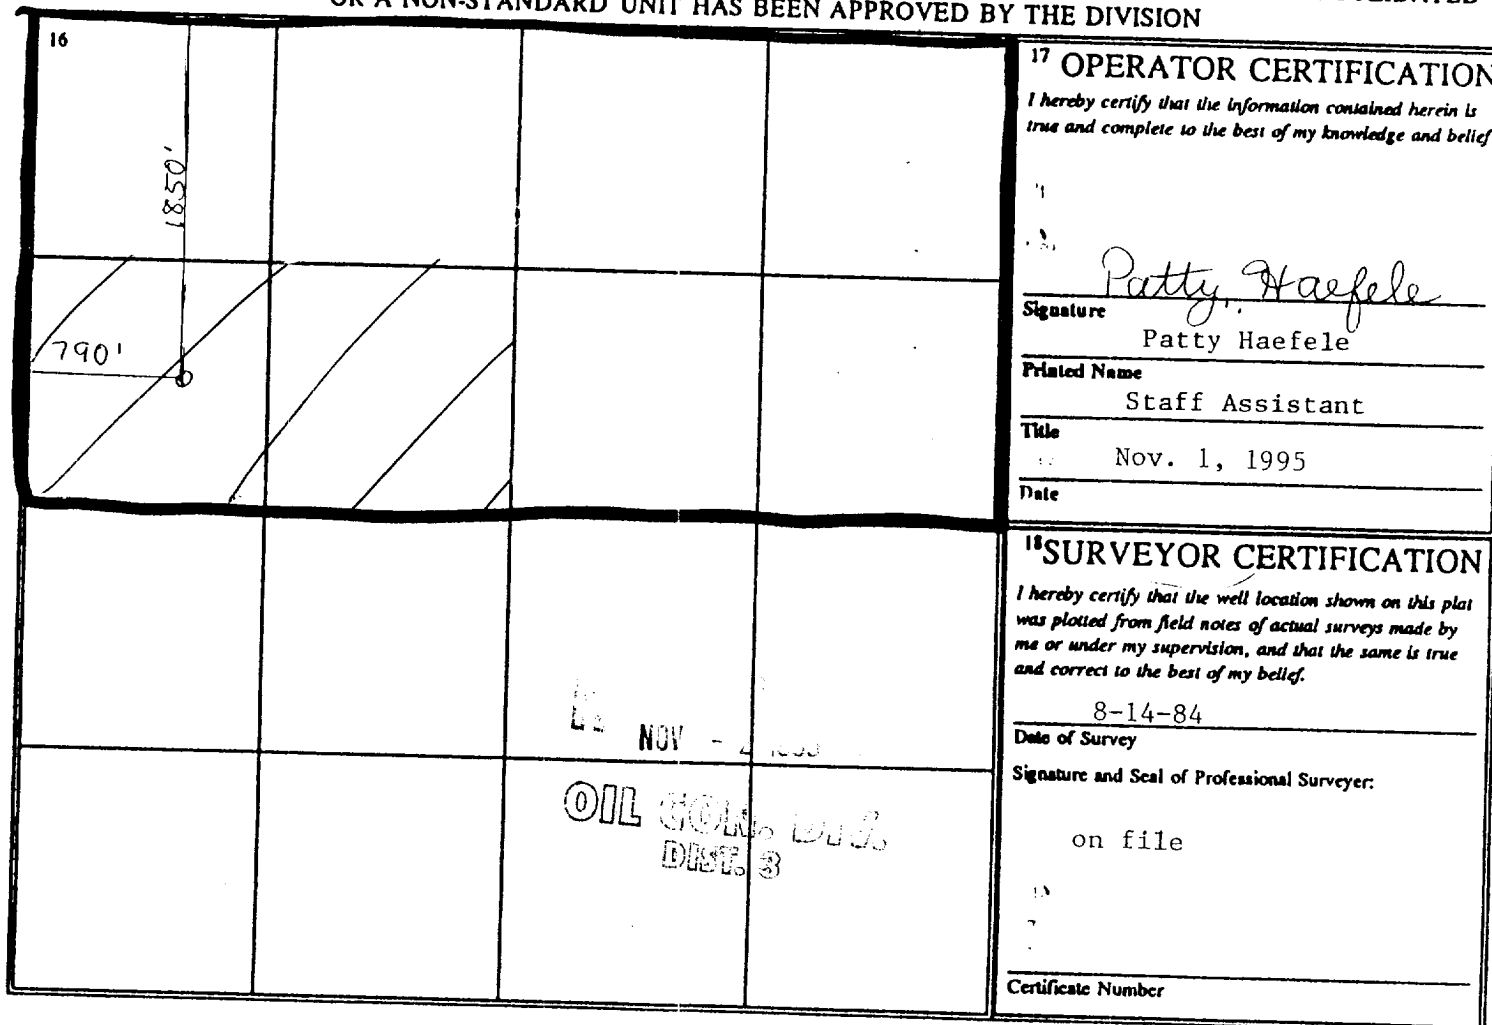 OR A NON-STANDARD UNIT HAS BEEN APPROVED BY THE DIVISION
16
1850'
790'
17 OPERATOR CERTIFICATION
I hereby certify that the information contained herein is
true and complete to the best of my knowledge and belief
Patty Haefele
Signature
Patty Haefele
Printed Name
Staff Assistant
Title
Nov. 1, 1995
Date
18 SURVEYOR CERTIFICATION
I hereby certify that the well location shown on this plat
was plotted from field notes of actual surveys made by
me or under my supervision, and that the same is true
and correct to the best of my belief.
8-14-84
Date of Survey
Signature and Seal of Professional Surveyer:
on file
Certificate Number
NOV -
OIL CON. DIV.
DIST. 3